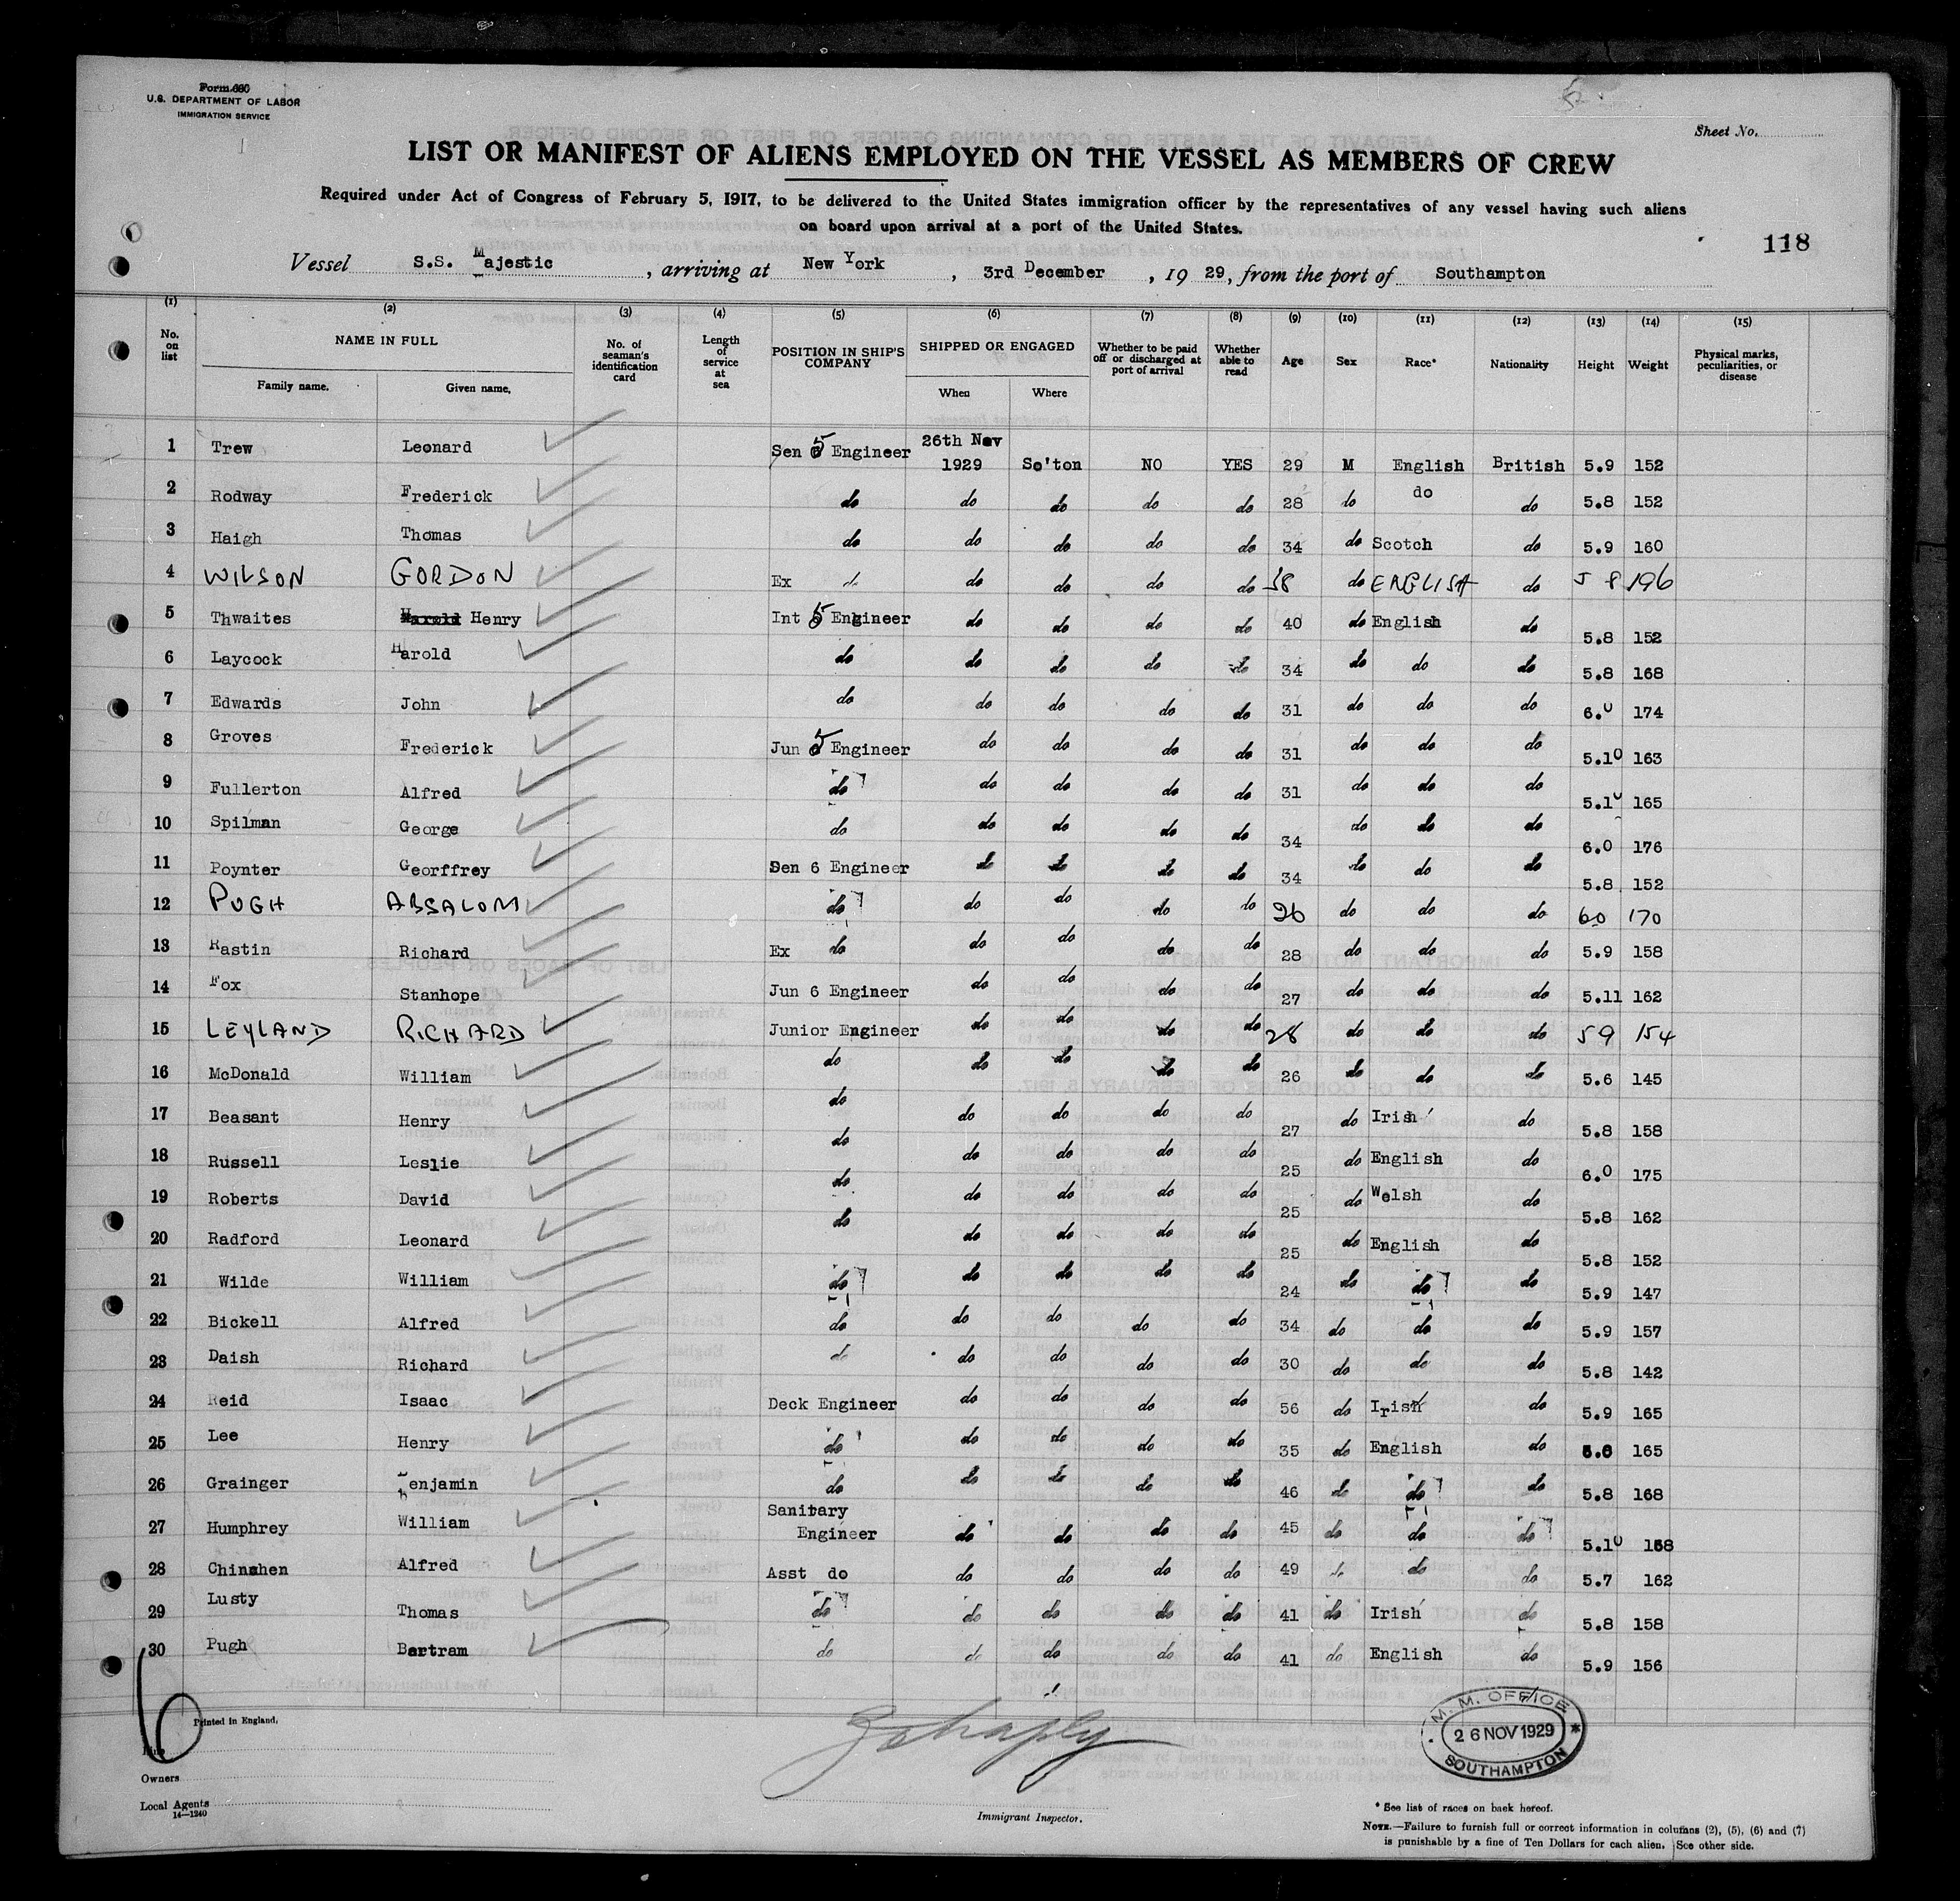 Form 680
U.S. DEPARTMENT OF LABOR
IMMIGRATION SERVICE
Sheet No.
LIST OR MANIFEST OF ALIENS EMPLOYED ON THE VESSEL AS MEMBERS OF CREW
Required under Act of Congress of February 5, 1917, to be delivered to the United States immigration officer by the representatives of any vessel having such aliens
on board upon arrival at a port of the United States.
118
Vessel S.S. Majestic, arriving at New York, 3rd December, 1929, from the port of Southampton
(1) (2) (3) (4) (5) (6) (7) (8) (9) (10) (11) (12) (13) (14) (15)
No. on list NAME IN FULL Family name. Given name. No. of seaman's identification card Length of service at sea POSITION IN SHIP'S COMPANY SHIPPED OR ENGAGED When Where Whether to be paid off or discharged at port of arrival Whether able to read Age Sex Race* Nationality Height Weight Physical marks, peculiarities, or disease
1 Trew Leonard Sen 5 Engineer 26th Nov 1929 So'ton NO YES 29 M English British 5.9 152
2 Rodway Frederick do do do do do 28 do do do 5.8 152
3 Haigh Thomas do do do do do 34 do Scotch do 5.9 160
4 WILSON GORDON Ex do do do do do 38 do ENGLISH do 5 8 196
5 Thwaites Harold Henry Int 5 Engineer do do do do 40 do English do 5.8 152
6 Laycock Harold do do do do do 34 do do do 5.8 168
7 Edwards John do do do do do 31 do do do 6.0 174
8 Groves Frederick Jun 5 Engineer do do do do 31 do do do 5.10 163
9 Fullerton Alfred do do do do do 31 do do do 5.10 165
10 Spilman George do do do do do 34 do do do 6.0 176
11 Poynter Georffrey Sen 6 Engineer do do do do 34 do do do 5.8 152
12 PUGH ABSALOM do do do do do 26 do do do 60 170
13 Rastin Richard Ex do do do do do 28 do do do 5.9 158
14 Fox Stanhope Jun 6 Engineer do do do do 27 do do do 5.11 162
15 LEYLAND RICHARD Junior Engineer do do do do 28 do do do 59 154
16 McDonald William do do do do do 26 do do do 5.6 145
17 Beasant Henry do do do do do 27 do Irish do 5.8 158
18 Russell Leslie do do do do do 25 do English do 6.0 175
19 Roberts David do do do do do 25 do Welsh do 5.8 162
20 Radford Leonard do do do do do 25 do English do 5.8 152
21 Wilde William do do do do do 24 do do do 5.9 147
22 Bickell Alfred do do do do do 34 do do do 5.9 157
23 Daish Richard do do do do do 30 do do do 5.8 142
24 Reid Isaac Deck Engineer do do do do 56 do Irish do 5.9 165
25 Lee Henry do do do do do 35 do English do 165
26 Grainger Benjamin do do do do do 46 do do do 5.8 168
27 Humphrey William Sanitary Engineer do do do do 45 do do do 5.10
28 Alfred Asst do do do do do 49 do do do 5.7 162
29 Lusty Thomas do do do do do 41 do Irish do 5.8 158
30 Pugh Bertram do do do do do 41 do English do 5.9 156
6
Printed in England.
Owners
Local Agents
14—1240
Immigrant Inspector.
M.M. OFFICE
26 NOV 1929
SOUTHAMPTON
* See list of races on back hereof.
NOTE.—Failure to furnish full or correct information in columns (2), (5), (6) and (7)
is punishable by a fine of Ten Dollars for each alien. See other side.